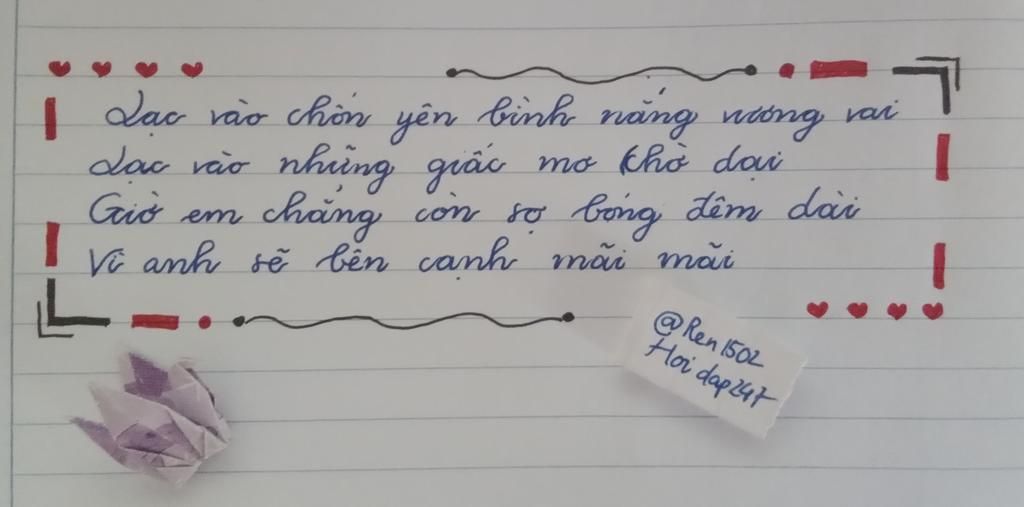 Lạc vào chốn yên bình nắng vương vai
Lạc vào những giấc mơ khờ dại
Giờ em chẳng còn sợ bóng đêm dài
Vì anh sẽ bên cạnh mãi mãi
@Ren1502
Hoi dap247